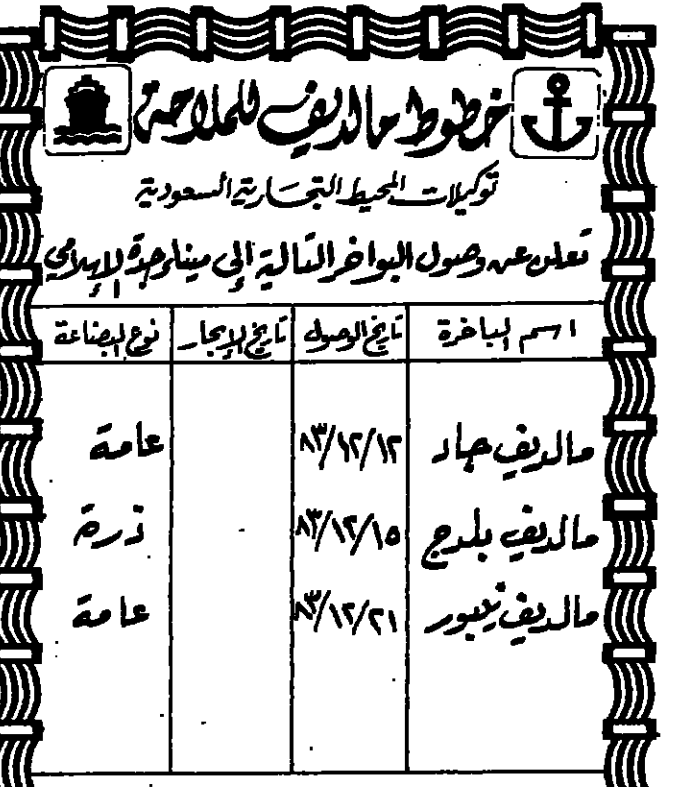 خطوط مالديف للملاحة
توكيلات المحيط التجارية السعودية
تعلن عن وصول البواخر التالية إلى ميناء جدة الإسلامي
اسم الباخرة تاريخ الوصول تاريخ الإبحار نوع البضاعة
مالديف جاد ٨٣/١٢/١٢ عامة
مالديف بلدج ٨٣/١٢/١٥ ذرة
مالديف نيبور ٨٣/١٢/٢١ عامة